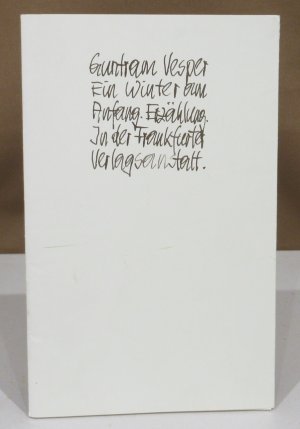 Guntram Vesper
Ein Winter am
Anfang. Erzählung.
In der Frankfurter
Verlagsanstalt.